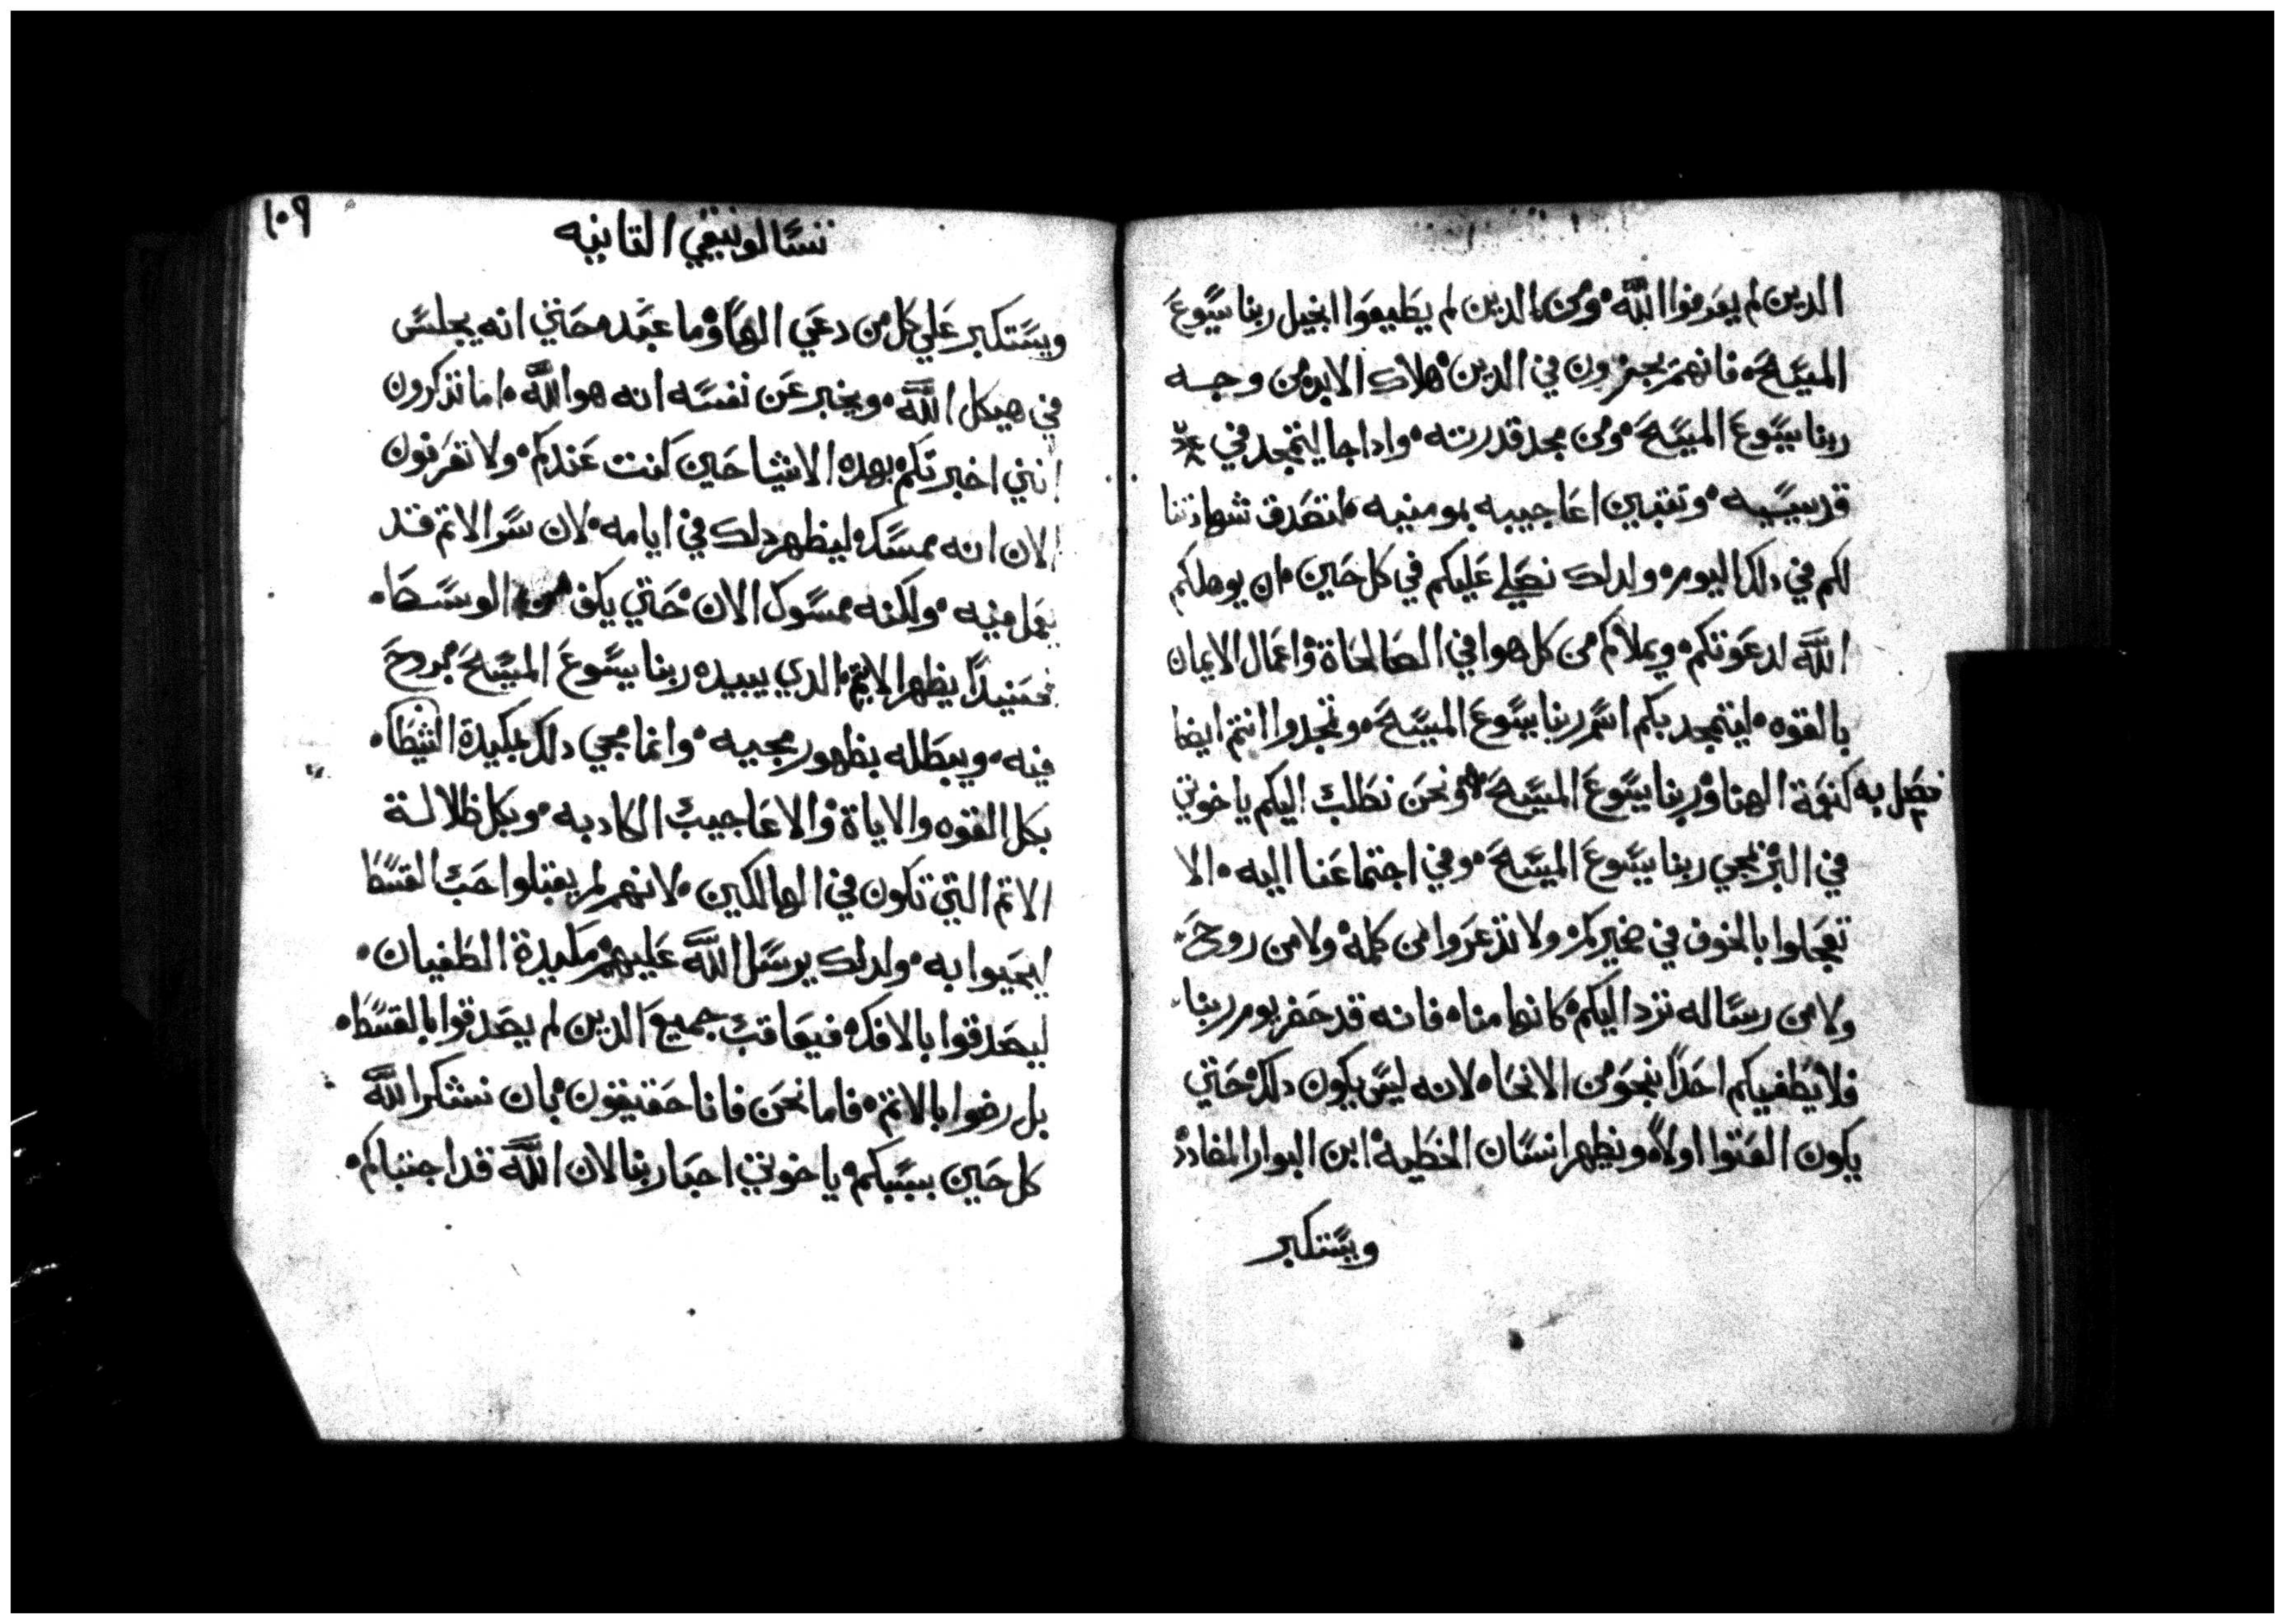 الدين لم يعرفوا الله ومن الدين لم يطيعوا انجيل ربنا يسوع
المسيح فانهم يجزون في الدين هلاك الابد من وجه
ربنا يسوع المسيح ومن مجد قدرته واداجا ليتمجد في
قديسيه وتتبين اعاجيبه بمومنيه لتصدق شهادتنا
لكم في دلك اليوم ولدلك نصلي عليكم في كل حين ان يوهلكم
الله لدعوتكم ويملاكم من كل هوا في الصالحاة واعمال الايمان
بالقوه ليتمجد بكم اسم ربنا يسوع المسيح وتمجدوا انتم ايضا
به كنعمة الهنا وربنا يسوع المسيح ونحن نطلب اليكم ياخوتي
فصل
في البر بمجي ربنا يسوع المسيح وفي اجتماعنا اليه الا
تعجلوا بالخوف في ضميركم ولا تذعروا من كلمة ولا من روح
ولا من رساله ترد اليكم كانها منا فانه قد حضر يوم ربنا
فلا يطغيكم احدًا بنحو من الانحا لانه ليس يكون دلك حتي
يكون العتوا اولاً ويظهر انسان الخطيه ابن البوار المضادد
ويستكبر
١٠٩
تسالونيقي التانيه
ويستكبر علي كل من دعي الهًا وما عبد حتي انه يجلس
في هيكل الله ويخبر عن نفسه انه هو الله اما تذكرون
انني اخبرتكم بهده الاشيا حين كنت عندكم ولا تعرفون
الان انه ممسك ليظهر دلك في ايامه لان سر الاتم قد
يعمل فيه ولكنه ممسوك الان حتي يكف من الوسط
فحينيدًا يظهر الاتم الدي يبيده ربنا يسوع المسيح بروح
فيه ويبطله بظهور مجيه وانما مجي دلك بمكيدة الشيطا
بكل القوه والاياة والاعاجيب الكادبه وبكل ظلالة
الاتم التي تكون في الهالكين لانهم لم يقبلوا حب القسط
ليحيوا به ولدلك يرسل الله عليهم مكيدة الطغيان
ليصدقوا بالافك فيعاقب جميع الدين لم يصدقوا بالقسط
بل رضوا بالاتم فاما نحن فانا حقيقون بان نشكر الله
كل حين بسببكم ياخوتي احبا ربنا لان الله قد اجتباكم